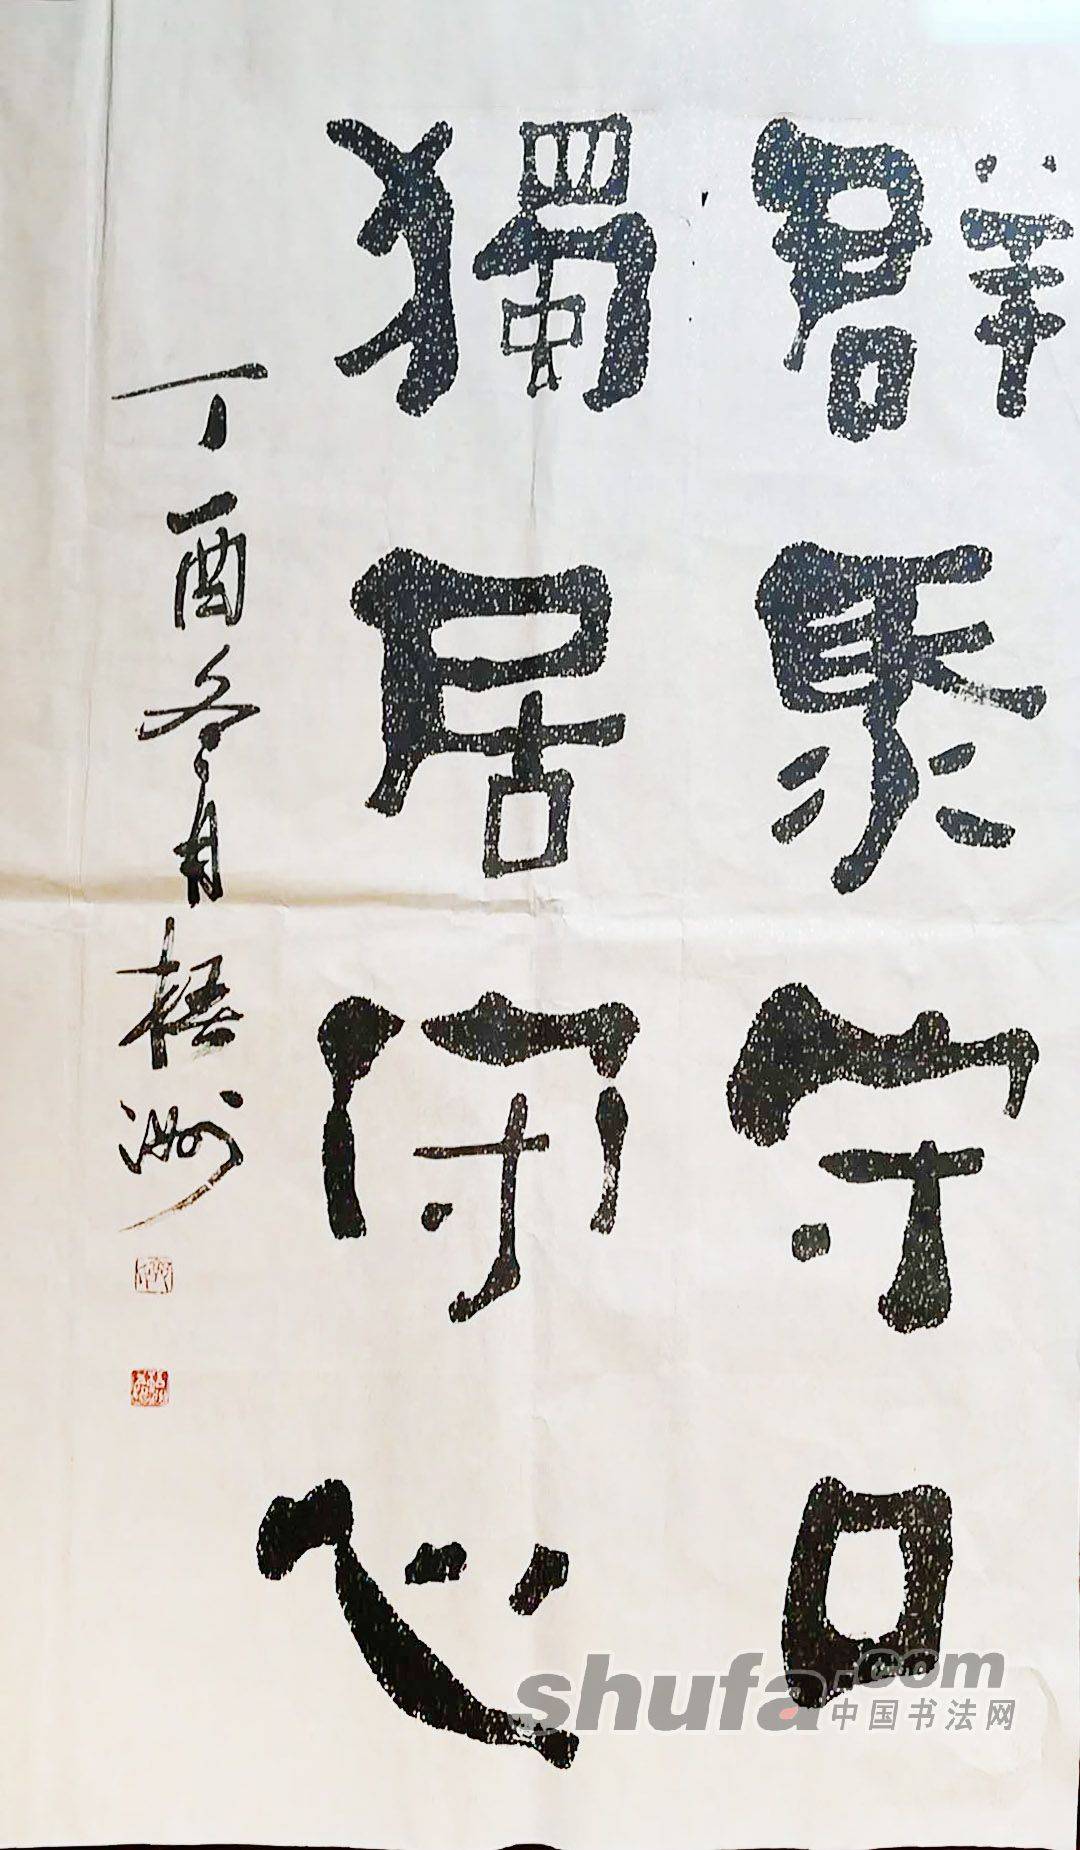 群聚守口
獨居守心
丁酉冬月梧洲
shufa.com
中国书法网